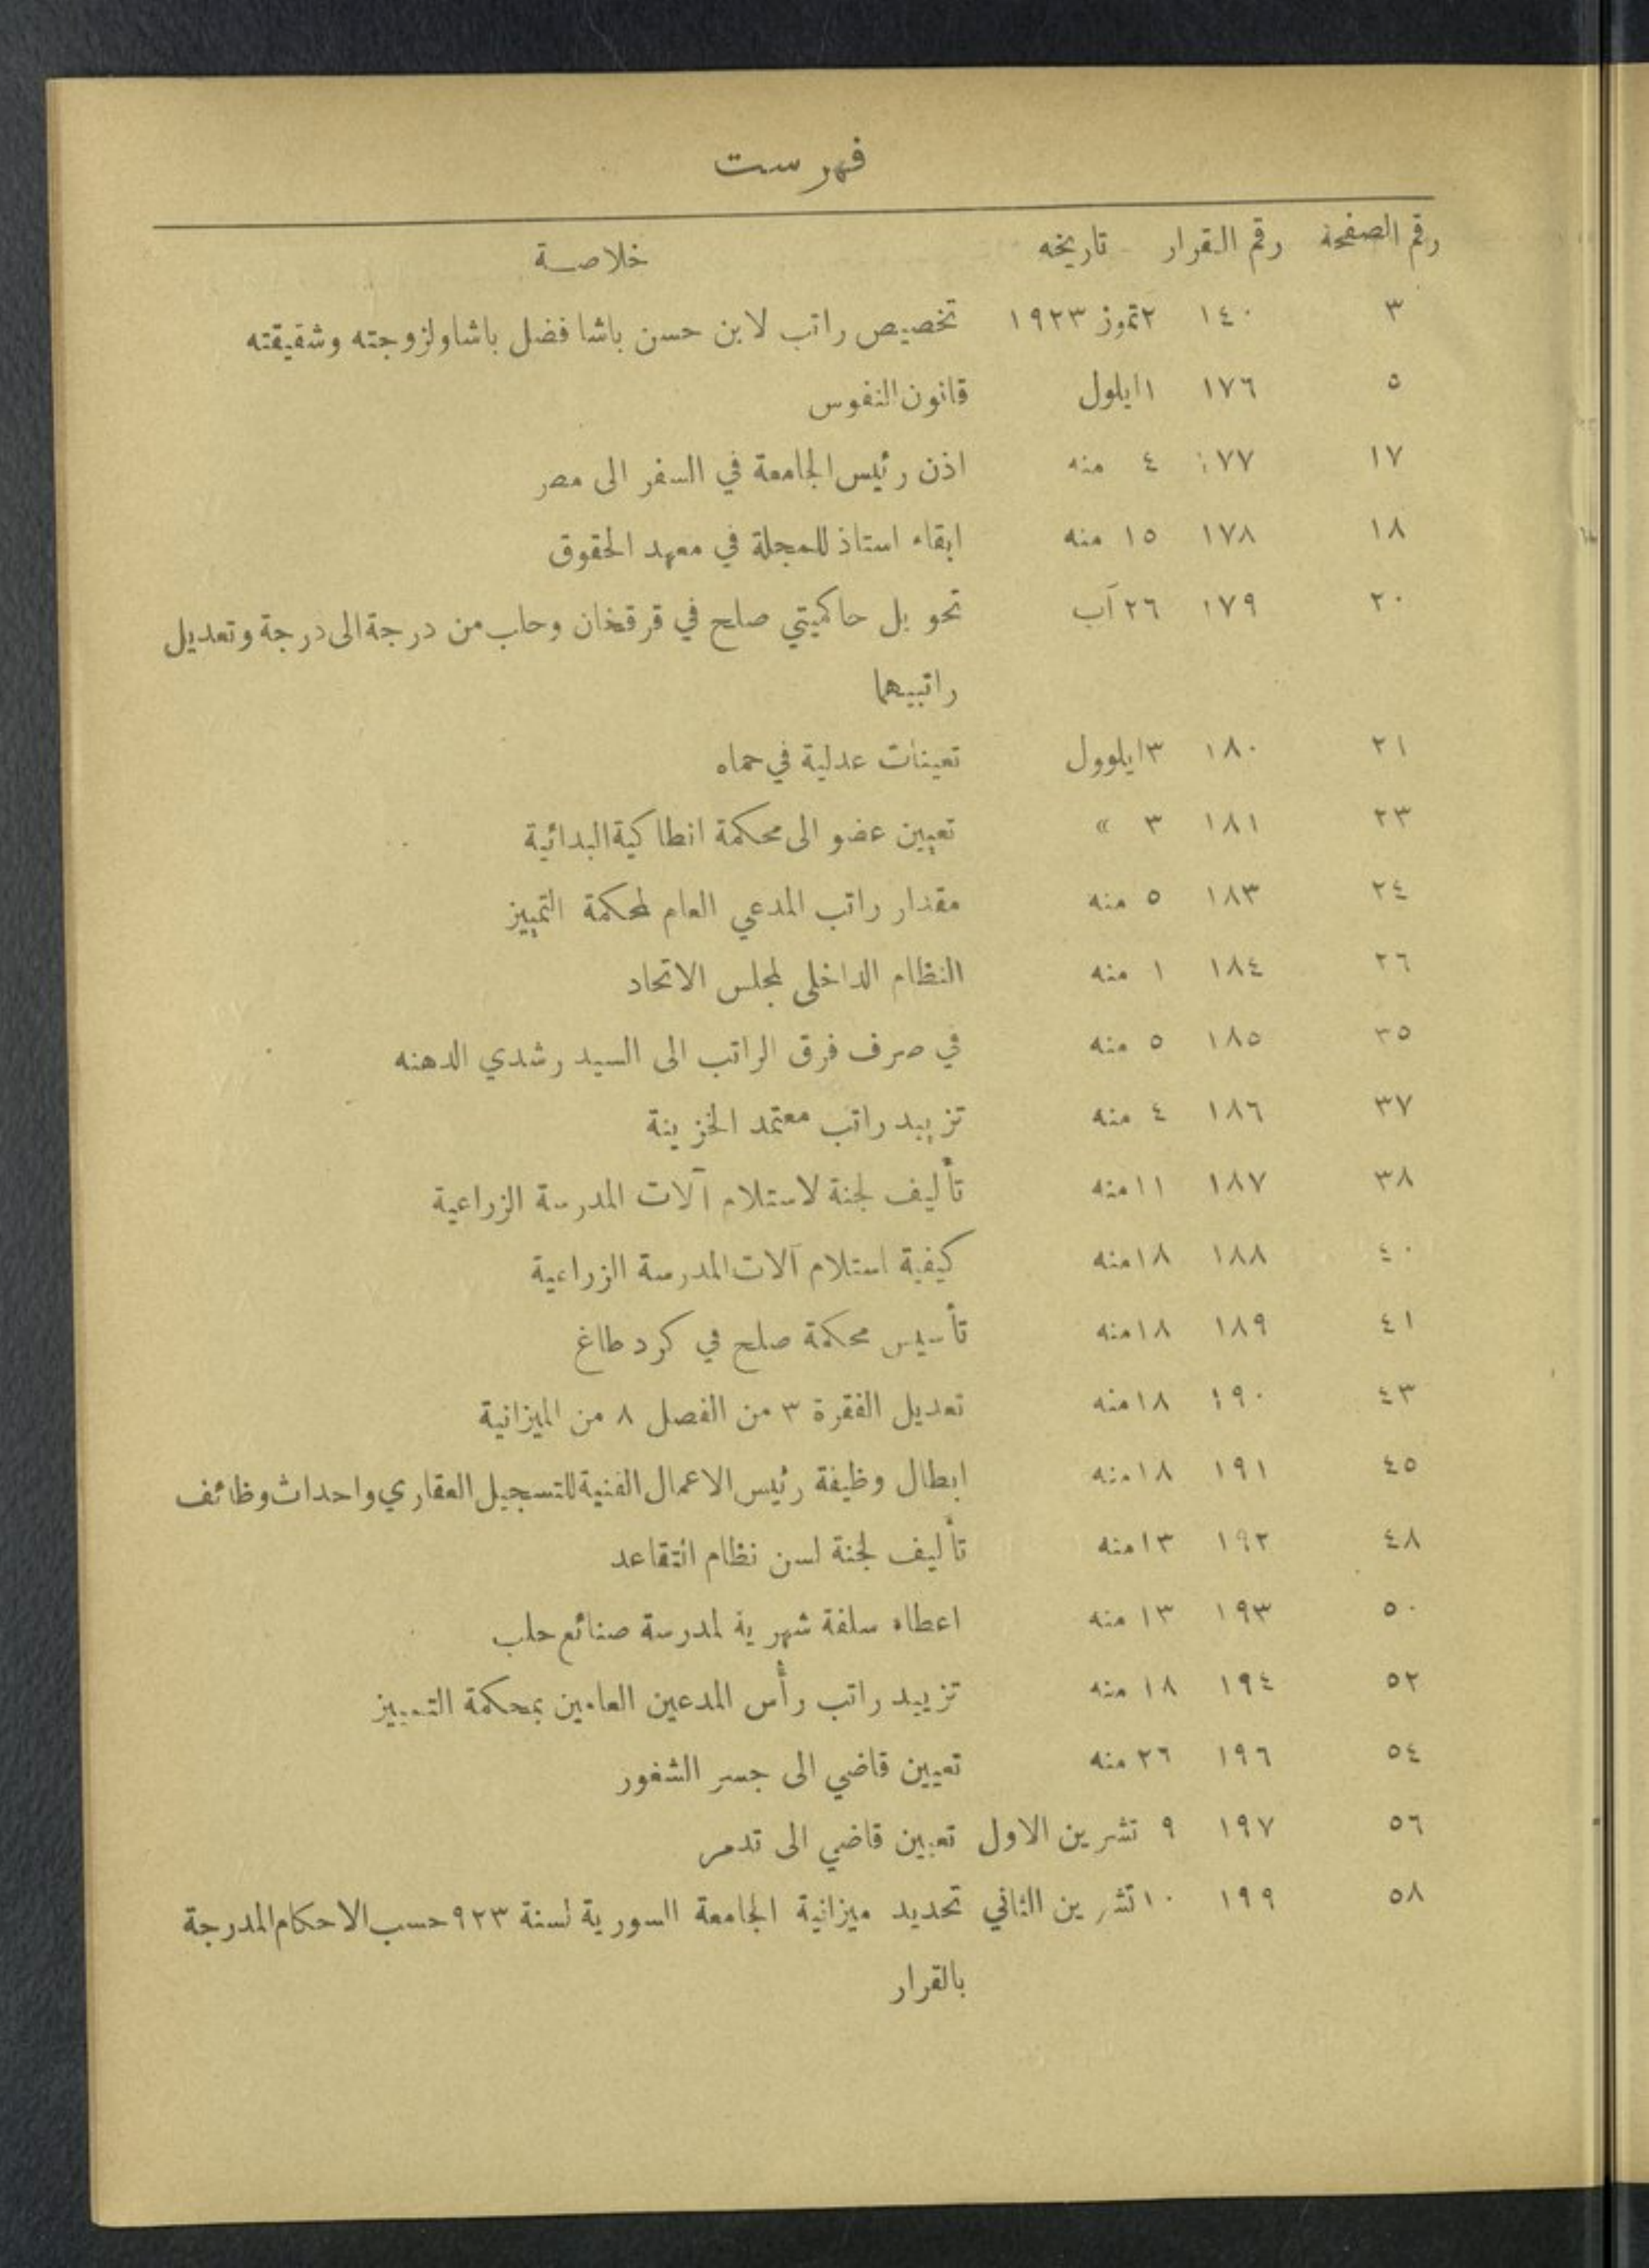 فهرست
رقم الصفحة رقم القرار تاريخه خلاصة
٣ ١٤٠ ٢ تموز ١٩٢٣ تخصيص راتب لابن حسن باشا فضل باشا ولزوجته وشقيقته
٥ ١٧٦ ١ ايلول قانون النفوس
١٧ ١٧٧ ٤ منه اذن رئيس الجامعة في السفر الى مصر
١٨ ١٧٨ ١٥ منه ابقاء استاذ للمجلة في معهد الحقوق
٢٠ ١٧٩ ٢٦ آب تحويل حاكميتي صلح في قرقخان وحاب من درجة الى درجة وتعديل
راتبيهما
٢١ ١٨٠ ٣ ايلوول تعينات عدلية في حماه
٢٣ ١٨١ ٣ » تعيين عضو الى محكمة انطاكية البدائية
٢٤ ١٨٣ ٥ منه مقدار راتب المدعي العام لمحكمة التمييز
٢٦ ١٨٤ ١ منه النظام الداخلي لمجلس الاتحاد
٣٥ ١٨٥ ٥ منه في صرف فرق الراتب الى السيد رشدي الدهنه
٣٧ ١٨٦ ٤ منه تزييد راتب معتمد الخزينة
٣٨ ١٨٧ ١١ منه تأليف لجنة لاستلام آلات المدرسة الزراعية
٤٠ ١٨٨ ١٨ منه كيفية استلام آلات المدرسة الزراعية
٤١ ١٨٩ ١٨ منه تأسيس محكمة صلح في كرد طاغ
٤٣ ١٩٠ ١٨ منه تعديل الفقرة ٣ من الفصل ٨ من الميزانية
٤٥ ١٩١ ١٨ منه ابطال وظيفة رئيس الاعمال الفنية للتسجيل العقاري واحداث وظائف
٤٨ ١٩٢ ١٣ منه تأليف لجنة لسن نظام التقاعد
٥٠ ١٩٣ ١٣ منه اعطاء سلفة شهرية لمدرسة صنائع حلب
٥٢ ١٩٤ ١٨ منه تزييد راتب رأس المدعين العامين بمحكمة التمييز
٥٤ ١٩٦ ٢٦ منه تعيين قاضي الى جسر الشغور
٥٦ ١٩٧ ٩ تشرين الاول تعيين قاضي الى تدمر
٥٨ ١٩٩ ١٠ تشرين الثاني تحديد ميزانية الجامعة السورية لسنة ٩٢٣ حسب الاحكام المدرجة
بالقرار